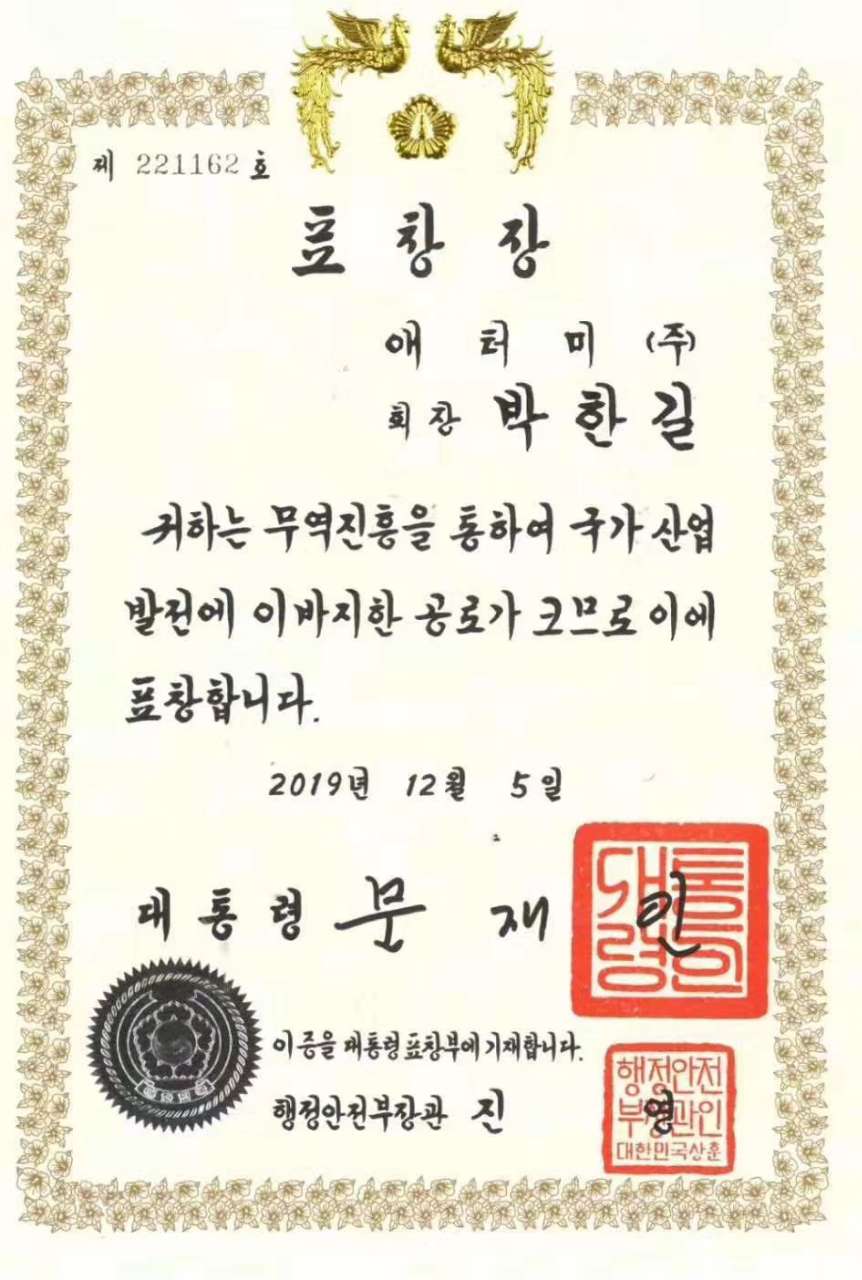 제 221162 호
표창장
애터미 (주)
회장 박한길
귀하는 무역진흥을 통하여 국가 산업
발전에 이바지한 공로가 크므로 이에
표창합니다.
2019년 12월 5일
대통령 문재인
대통령의인
이 증을 대통령 표창부에 기재합니다.
행정안전부장관 진영
행정안전
부장관인
대한민국상훈